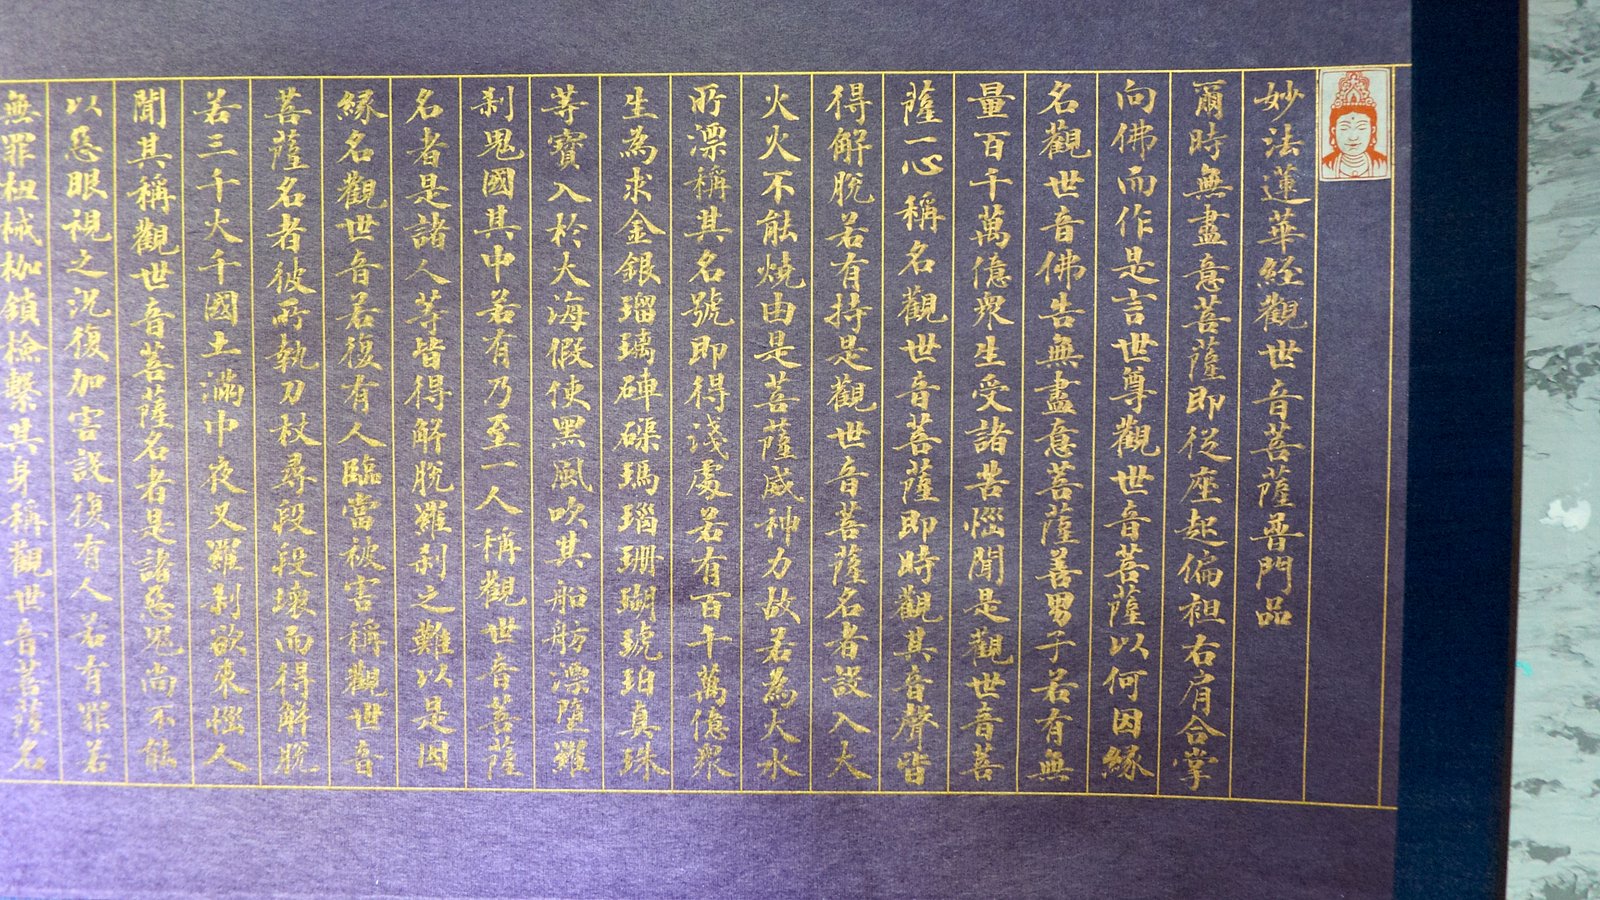 妙法蓮華経觀世音菩薩普門品
爾時無盡意菩薩即従座起偏袒右肩合掌
向佛而作是言世尊觀世音菩薩以何因縁
名觀世音佛告無盡意菩薩善男子若有無
量百千萬億衆生受諸苦惱聞是觀世音菩
薩一心稱名觀世音菩薩即時觀其音聲皆
得解脫若有持是觀世音菩薩名者設入大
火火不能燒由是菩薩威神力故若為大水
所漂稱其名號即得淺處若有百千萬億衆
生為求金銀瑠璃硨磲瑪瑙珊瑚琥珀真珠
等寶入於大海假使黑風吹其船舫漂墮羅
刹鬼國其中若有乃至一人稱觀世音菩薩
名者是諸人等皆得解脫羅刹之難以是因
縁名觀世音若復有人臨當被害稱觀世音
菩薩名者彼所執刀杖尋段段壊而得解脫
若三千大千國土滿中夜叉羅刹欲来惱人
聞其稱觀世音菩薩名者是諸惡鬼尚不能
以惡眼視之況復加害設復有人若有罪若
無罪杻械枷鎖檢繫其身稱觀世音菩薩名